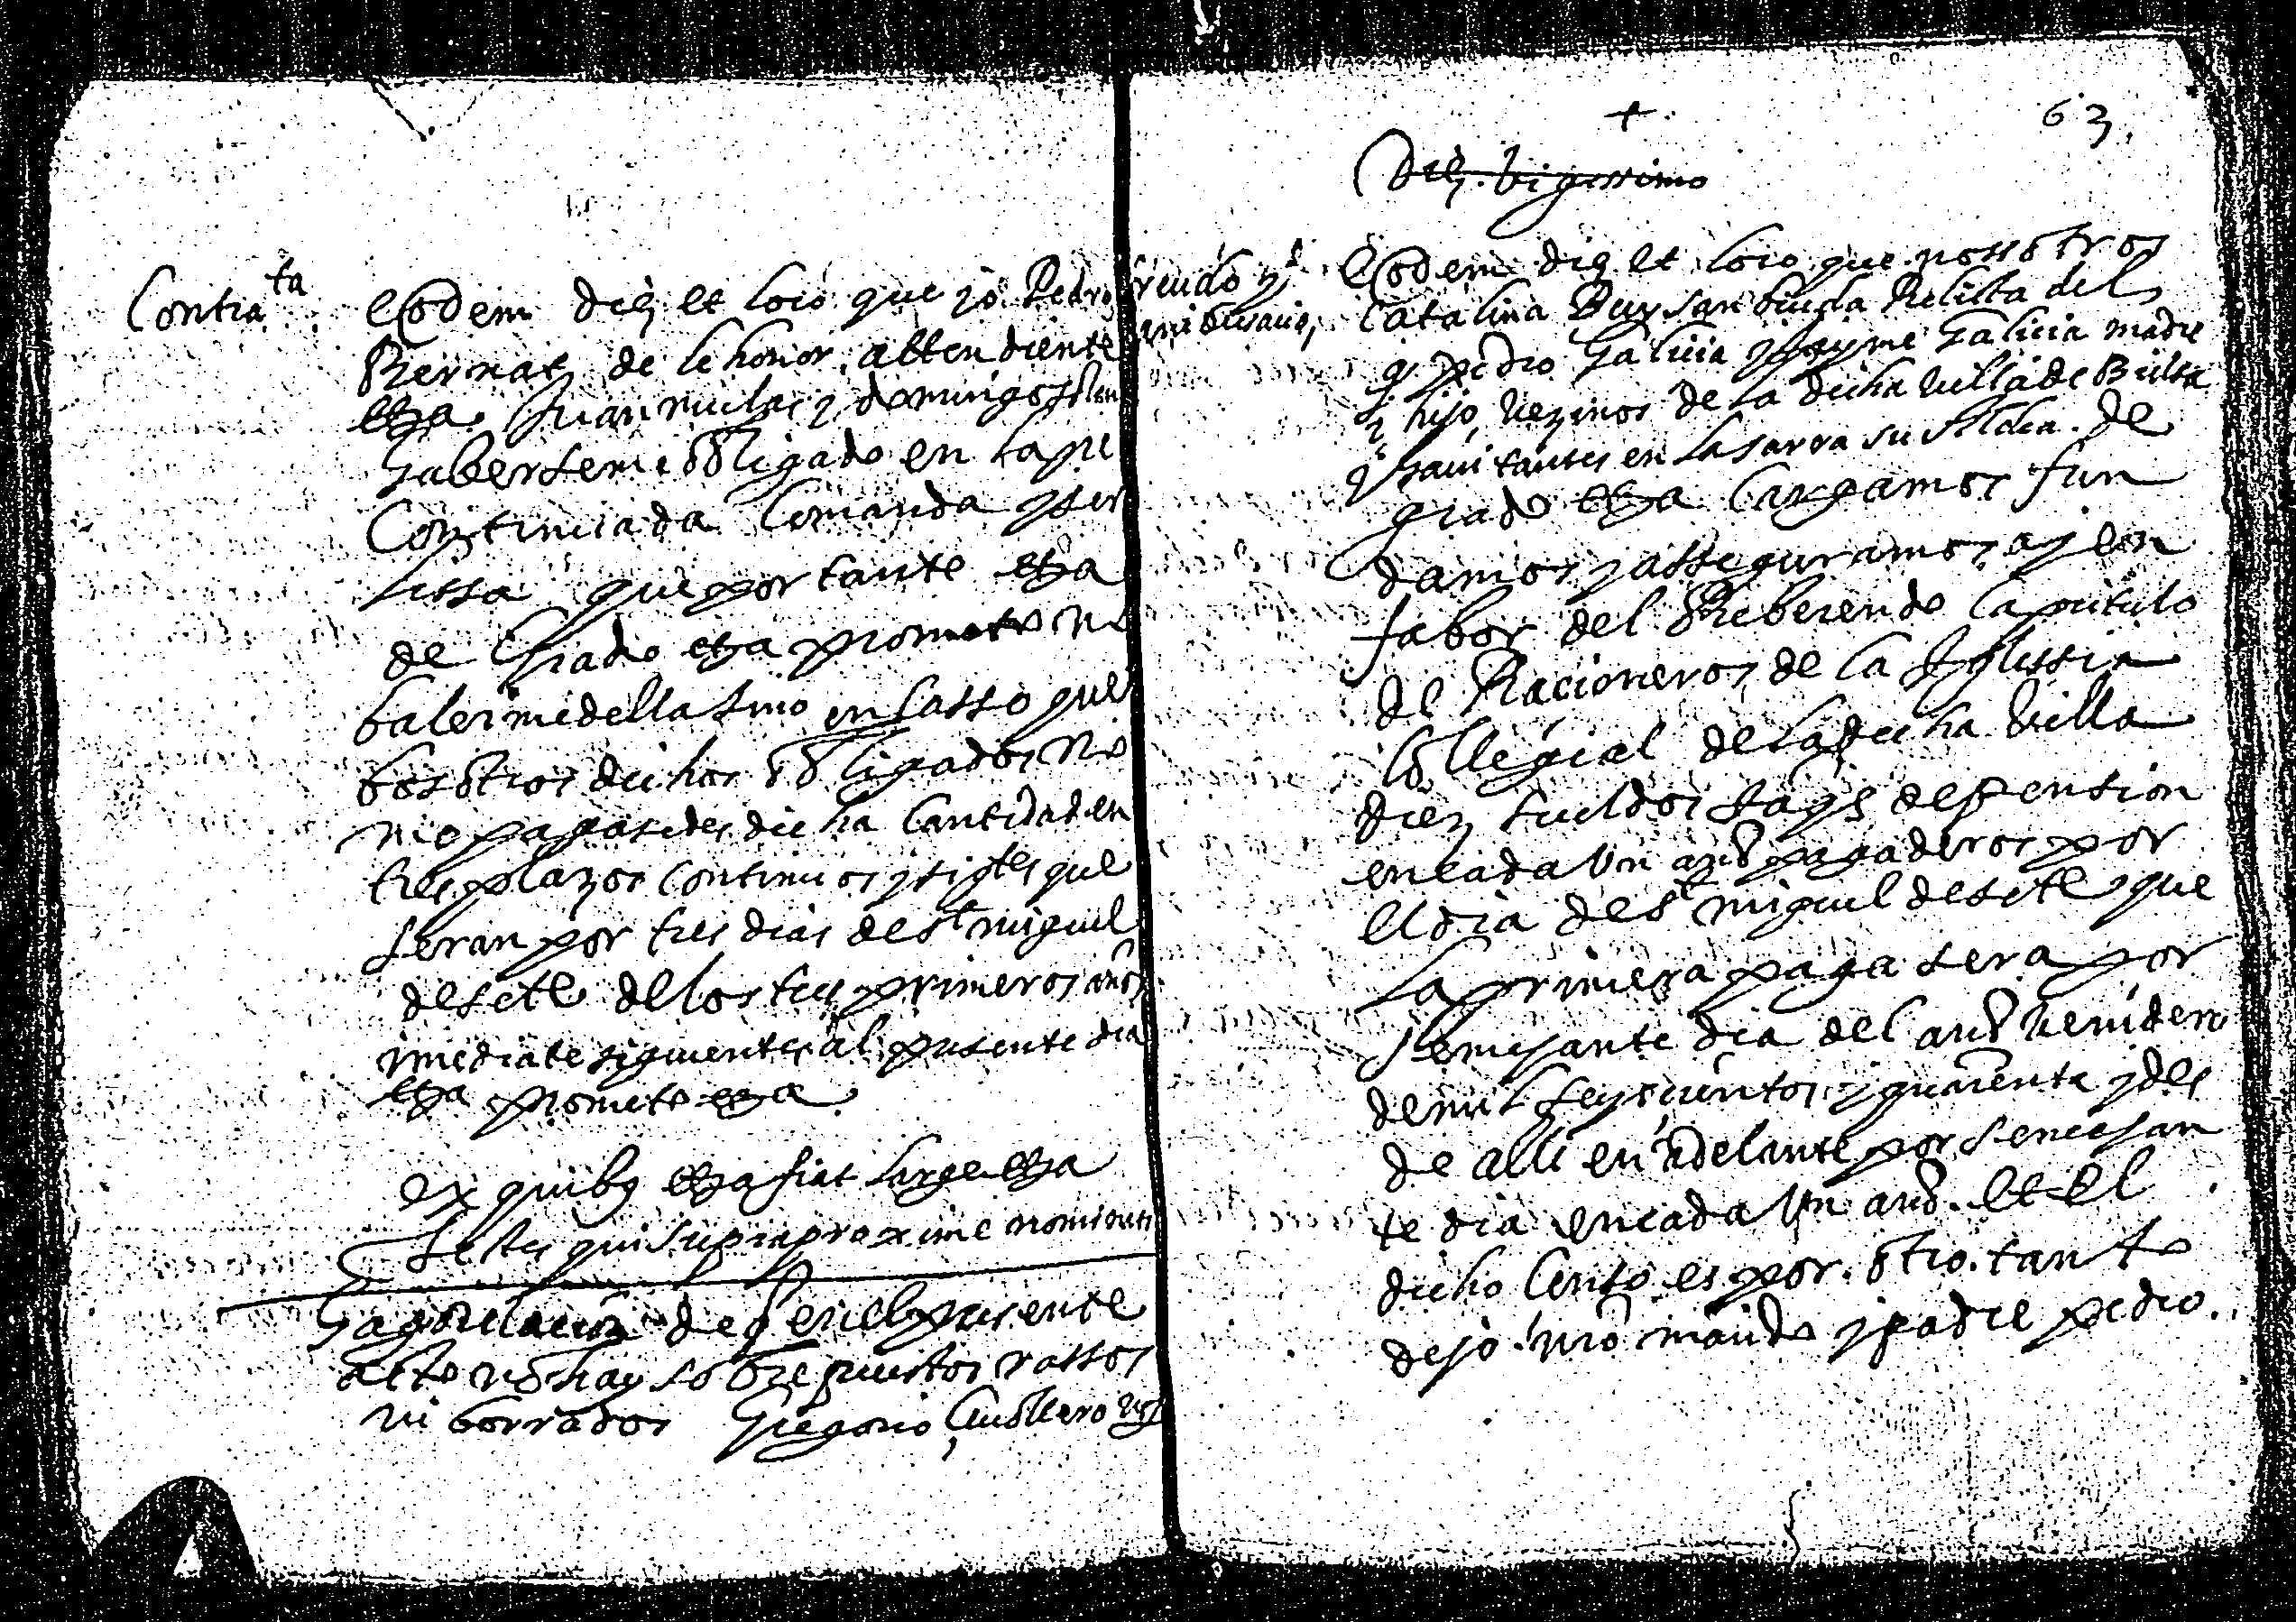 Contra ta
Eodem die et loco que yo Pedro
Bernat de lehonor attendiente
etza Juan mulac y domingo
haberseme obligado en la pre
Continuada Comanda y ser
lissa que por tante etza
de Grado etza prometo no
balerme della sino en Casso que
bosotros dichos obligados no
me pagasedes dicha Cantidad en
tres plazos continuos y sigtes que
seran por tres dias de St miguel
de sete de los tres primeros años
imediate siguientes al presente dia
etza prometo etza
ex quibus etza fiat large etza
testes qui supra proxime nominati
Haga relacion de ser el presente
acto no hay sobre puestos rassos
ni borrados Gregorio not
+
63
Die bigessimo
Eodem die et loco que nossotros
Catalina Buysan biuda Relicta del
q. pedro Galicia y Jayme Galicia madre
y hijo vezinos de la dicha villa de Bielsa
y havitantes en lasarra su Aldea. de
grado etza Cargamos fun
damos y asseguramos a y en
fabor del Reberendo Capitulo
de Racioneros de la Iglessia
Collegial de la dicha billa
diez sueldos Jaqs de pension
en cada Un año pagaderos por
el dia de St miguel de sete que
la primera paga sera por
semejante dia del año venidero
de mil seyscientos y quarenta y des
de alli en adelante por semejan
te dia en cada Un año. et el
dicho Censo es por otro tanto
dejo nro marido y padre pedro.